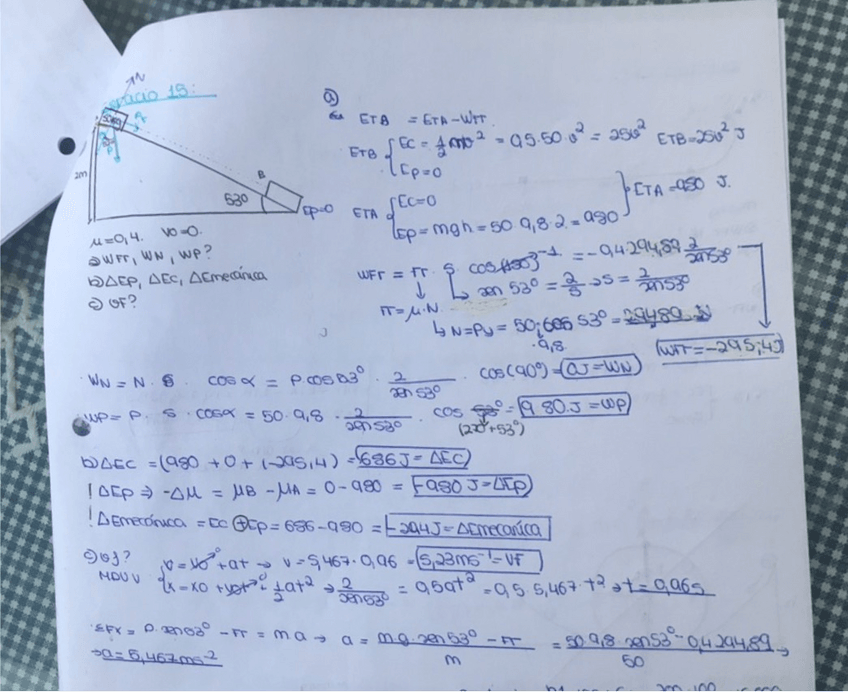 15:
N
2m
53º
B
Ep=0
μ=0,4. v0=0.
a) WFr, WN, WP?
b) ΔEP, ΔEC, ΔEmecánica
c) vF?
a)
ETB = ETA - WFr.
ETB { EC = 1/2 mv² = 0,5.50.v² = 25v² ETB=25v² J
Ep=0
ETA { EC=0 } ETA=980 J.
Ep=mgh=50.9,8.2=980
WFr = Fr . S. cos(180)^-1 = -0,4.294,89. 2/sen53º
sen 53º = 2/S → S = 2/sen53º
Fr=μ.N.
N=Py=50.cos 53º = 294,89 N
.9,8
WFr=-295,4J
WN = N. S. cosα = P cos53º . 2/sen53º . cos(90º)=0J=WN
WP= P. S. cosα = 50.9,8. 2/sen53º . cos = 980.J=WP
(270º+53º)
b) ΔEC = (980 + 0 + (-295,4) = 686J = ΔEC
! ΔEp ⇒ -Δμ = μB - μA = 0-980 = -980J=ΔEp
! ΔEmecánica = EC ⊕ Ep = 686-980 = -294J=ΔEmecanica
c) vf? v = v0 + at → v = 5,467.0,96 = 5,23ms^-1=VF
MRUV x = x0 + v0t + 1/2 at² → 2/sen53º = 0,5at² = 0,5.5,467.t² → t=0,96s
ΣFx = P.sen53º - Fr = ma → a = mg.sen53º - Fr / m = 50.9,8.sen53º-0,4.294,89 / 50 →
→ a=5,467ms^-2